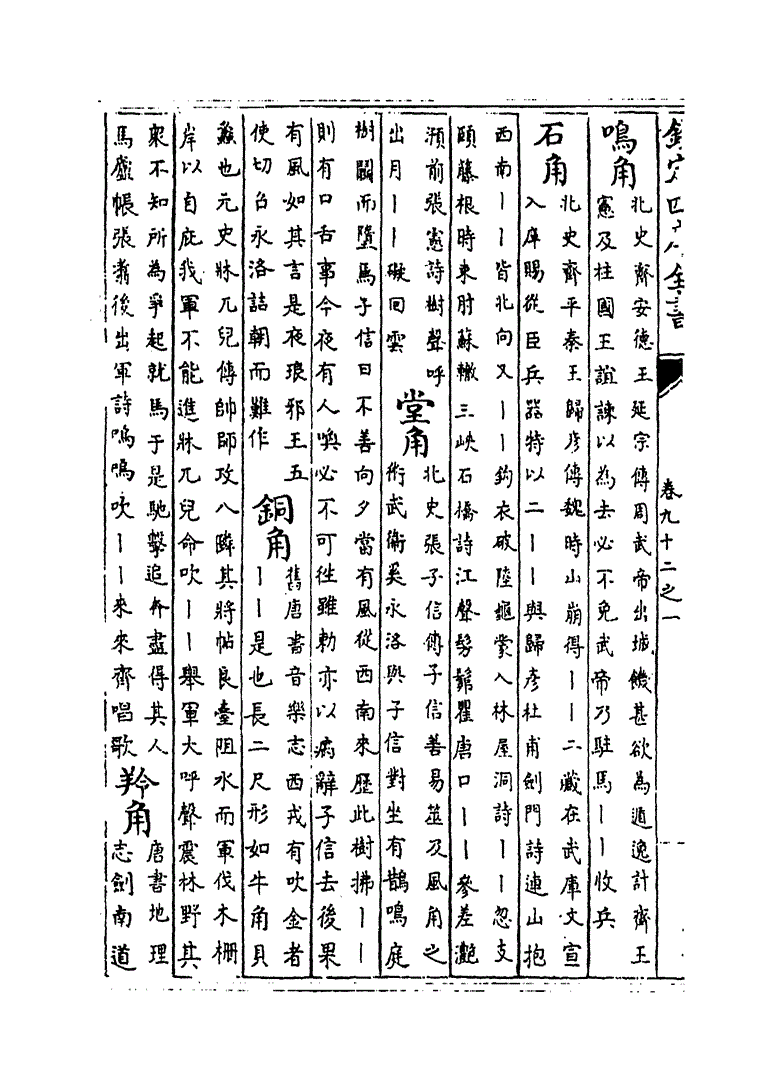 欽定四庫全書
卷九十二之一
鳴角
北史齊安德王延宗傳周武帝出城饑甚欲為遁逸計齊王
憲及柱國王誼諫以為去必不免武帝乃駐馬丨丨收兵
石角
北史齊平秦王歸彦傳魏時山崩得丨丨二藏在武庫文宣
入庫賜從臣兵器特以二丨丨與歸彦杜甫劍門詩連山抱
西南丨丨皆北向又丨丨鈎衣破陸龜蒙入林屋洞詩丨丨忽支
頤藤根時束肘蘇轍三峽石橋詩江聲髣髴瞿唐口丨丨參差灧
澦前張憲詩樹聲呼
出月丨丨礙回雲
堂角
北史張子信傳子信善易筮及風角之
術武衛奚永洛與子信對坐有鵲鳴庭
樹鬬而墮焉子信曰不善向夕當有風從西南來歴此樹拂丨丨
則有口舌事今夜有人喚必不可徃雖勅亦以病辭子信去後果
有風如其言是夜琅邪王五
使切召永洛詰朝而難作
銅角
舊唐書音樂志西戎有吹金者
丨丨是也長二尺形如牛角貝
蠡也元史牀兀兒傳帥師攻八隣其將帖良臺阻水而軍伐木柵
岸以自庇我軍不能進牀兀兒命吹丨丨舉軍大呼聲震林野其
衆不知所為爭起就馬于是馳擊追奔盡得其人
馬廬帳張翥後出軍詩嗚嗚吹丨丨來來齊唱歌
羚角
唐書地理
志劍南道